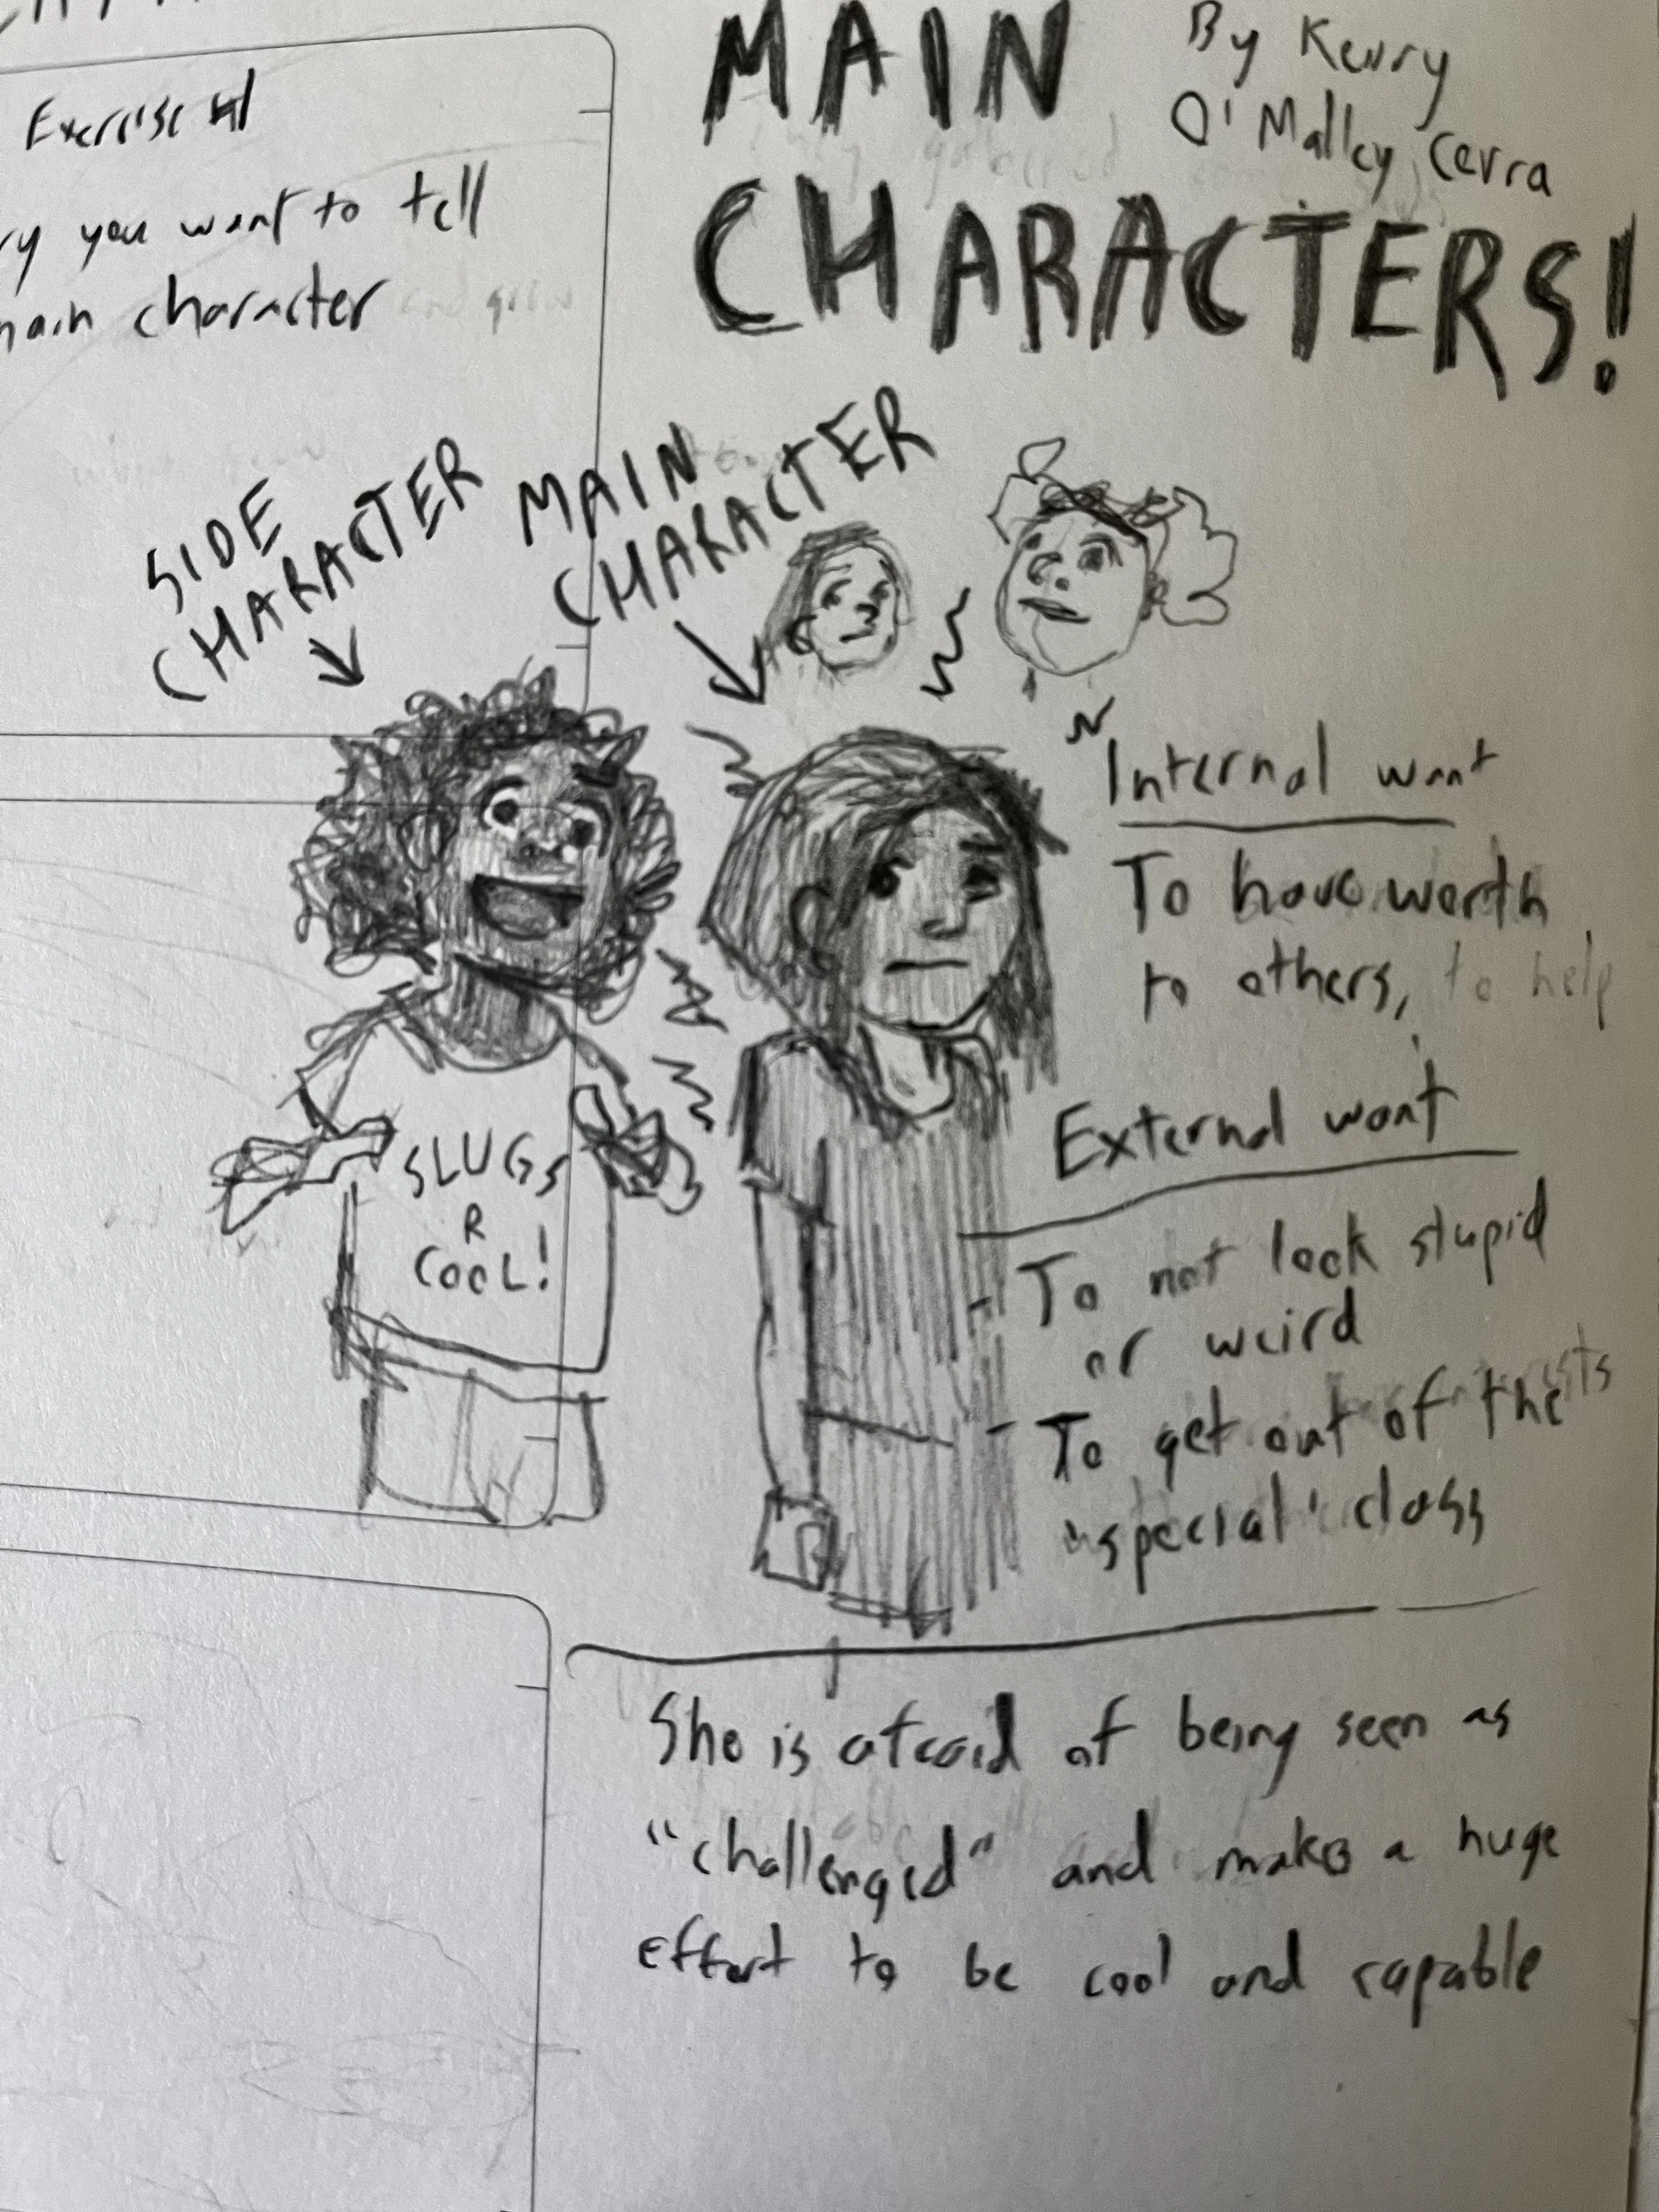 Exercise #1
ry you want to tell
main character
MAIN
CHARACTERS!
By Kerry
O'Malley Cerra
SIDE
CHARACTER
MAIN
CHARACTER
SLUGS
R
COOL!
Internal want
To have worth
to others, to help
External want
- To not look stupid
or weird
- To get out of the
'special' class
She is afraid of being seen as
"challenged" and makes a huge
effort to be cool and capable